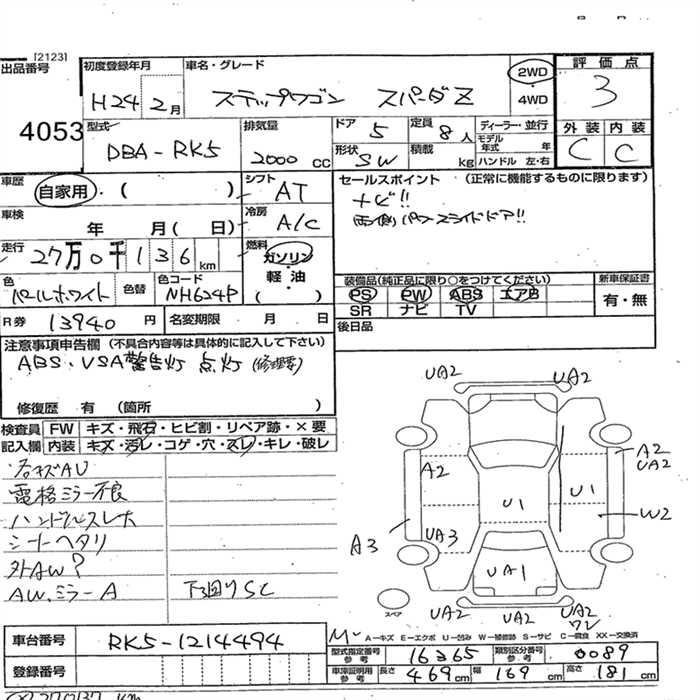 [2123]
出品番号
4053
初度登録年月
H24 2月
車名・グレード
ステップワゴン スパーダZ
2WD
4WD
評価点
3
型式
DBA-RK5
排気量
2000 cc
ドア 5
定員 8人
形状 SW
積載 kg
ディーラー・並行
モデル年式 年
ハンドル 左・右
外装 内装
C C
車歴
自家用・( )
シフト AT
車検
年 月( 日)
冷房 A/C
走行
27万0千136 km
燃料
ガソリン
軽・油
( )
セールスポイント (正常に機能するものに限ります)
ナビ!!
両側パワースライドドア!!
色
パールホワイト
色替
色コード
NH624P
装備品(純正品に限り○をつけてください)
PS PW ABS エアB
SR ナビ TV
新車保証書
有・無
R券 13940 円
名変期限 月 日
後日品
注意事項申告欄 (不具合内容等は具体的に記入して下さい)
ABS、VSA警告灯 点灯 (修理要)
修復歴 有 (箇所 )
検査員 FW キズ・飛石・ヒビ割・リペア跡・×要
記入欄 内装 キズ・汚レ・コゲ・穴・スレ・キレ・破レ
電格ミラー不良
ハンドルスレ大
シートヘタリ
外AW?
AW、ミラーA
下回りSC
UA2 UA2
A2 A2
UA2
U1 U1
W2
A3 UA3
UA1
スペア
UA2 UA2 UA2
ワレ
車台番号 RK5-1214494
登録番号
A-キズ E-エクボ U-凹み W-補修跡 S-サビ C-腐食 XX-交換済
型式指定番号 参考 16365
類別区分番号 参考 0089
車庫証明用 参考 長さ 469cm 幅 169cm 高さ 181cm